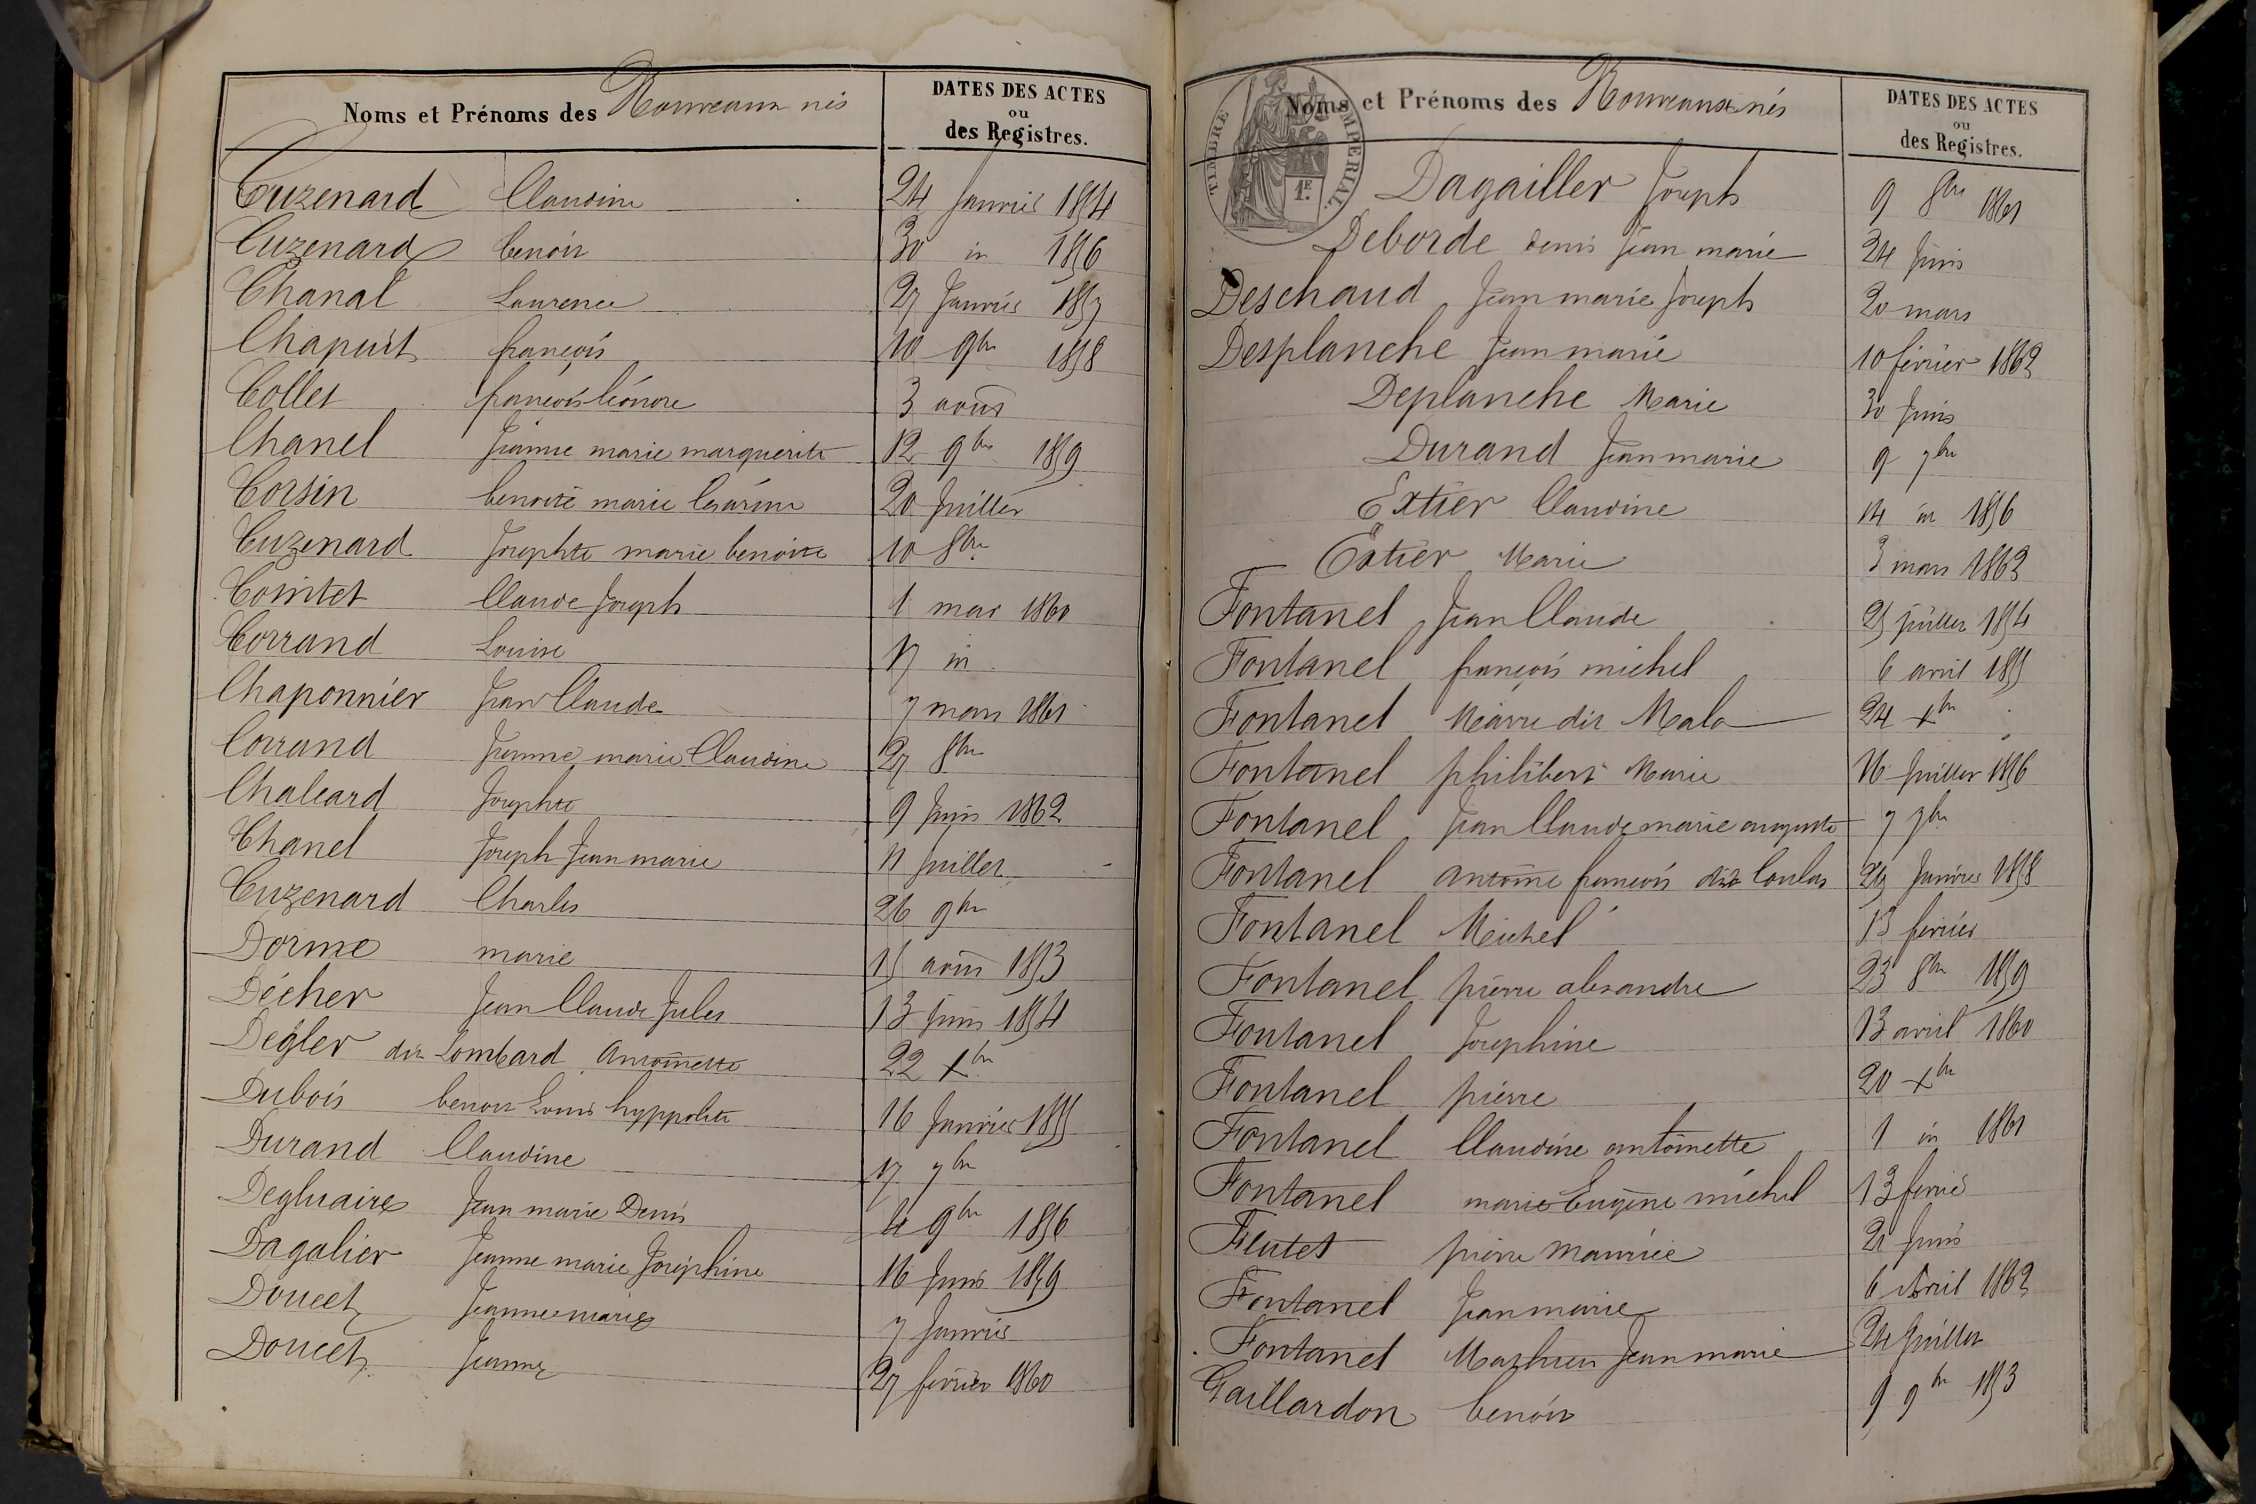 Noms et Prénoms des Nouveaux nés
DATES DES ACTES
ou
des Registres.
Cuzenard Claudine 24 Janvier 1854
Cuzenard benoit 30 in 1856
Chanal Laurence 27 Janvier 1857
Chapuit françois 10 9bre 1858
Collet françois léonore 3 août
Chanel Jeanne marie marguerite 12 9bre 1859
Corsin benoite marie Césarine 20 Juillet
Cuzenard Josephte marie benoite 10 8bre
Cointet Claude Joseph 1 mar 1860
Corrand Louise 17 in
Chaponnier Jean Claude 7 mars 1861
Corrand Jeanne marie Claudine 27 8bre
Chaleard Josephte 9 Juin 1862
Chanel Joseph Jean marie 11 Juillet
Cuzenard Charles 26 9bre
Dorme marie 15 août 1853
Décher Jean Claude Jules 13 Juin 1854
Dégler dit Lombard Antoinette 22 Xbre
Dubois benoit Louis hyppolite 16 Janvier 1855
Durand Claudine 17 7bre
Degluaire Jean marie Denis 4 9bre 1856
Dagalier Jeanne marie Joséphine 16 Juin 1859
Doucet Jeanne marie 7 Janvier
Doucet Jeanne 27 février 1860
Noms et Prénoms des Nouveaux nés
DATES DES ACTES
ou
des Registres.
TIMBRE IMPERIAL
1E.
Dagailler Joseph 9 8bre 1861
Deborde denis Jean marie 24 Juin
Deschaud Jean marie Joseph 20 mars
Desplanche Jean marie 10 février 1862
Deplanche Marie 30 Juin
Durand Jean marie 9 7bre
Extier Claudine 14 in 1856
Extier Marie 3 mars 1863
Fontanel Jean Claude 25 juillet 1854
Fontanel françois michel 6 avril 1855
Fontanel dit Mala 24 Xbre
Fontanel philibert Marie 16 Juillet 1856
Fontanel Jean Claude marie auguste 7 7bre
Fontanel antoine françois dit Coulas 29 Janvier 1858
Fontanel Michel 13 février
Fontanel pierre alexandre 23 8bre 1859
Fontanel Josephine 13 avril 1860
Fontanel pierre 20 Xbre
Fontanel Claudine antoinette 1 in 1861
Fontanel marie Eugène michel 13 février
Flutet pierre Maurice 21 Juin
Fontanel Jean marie 6 Avril 1862
Fontanel Mathieu Jean marie 24 Juillet
Gaillardon benoit 9 9bre 1853